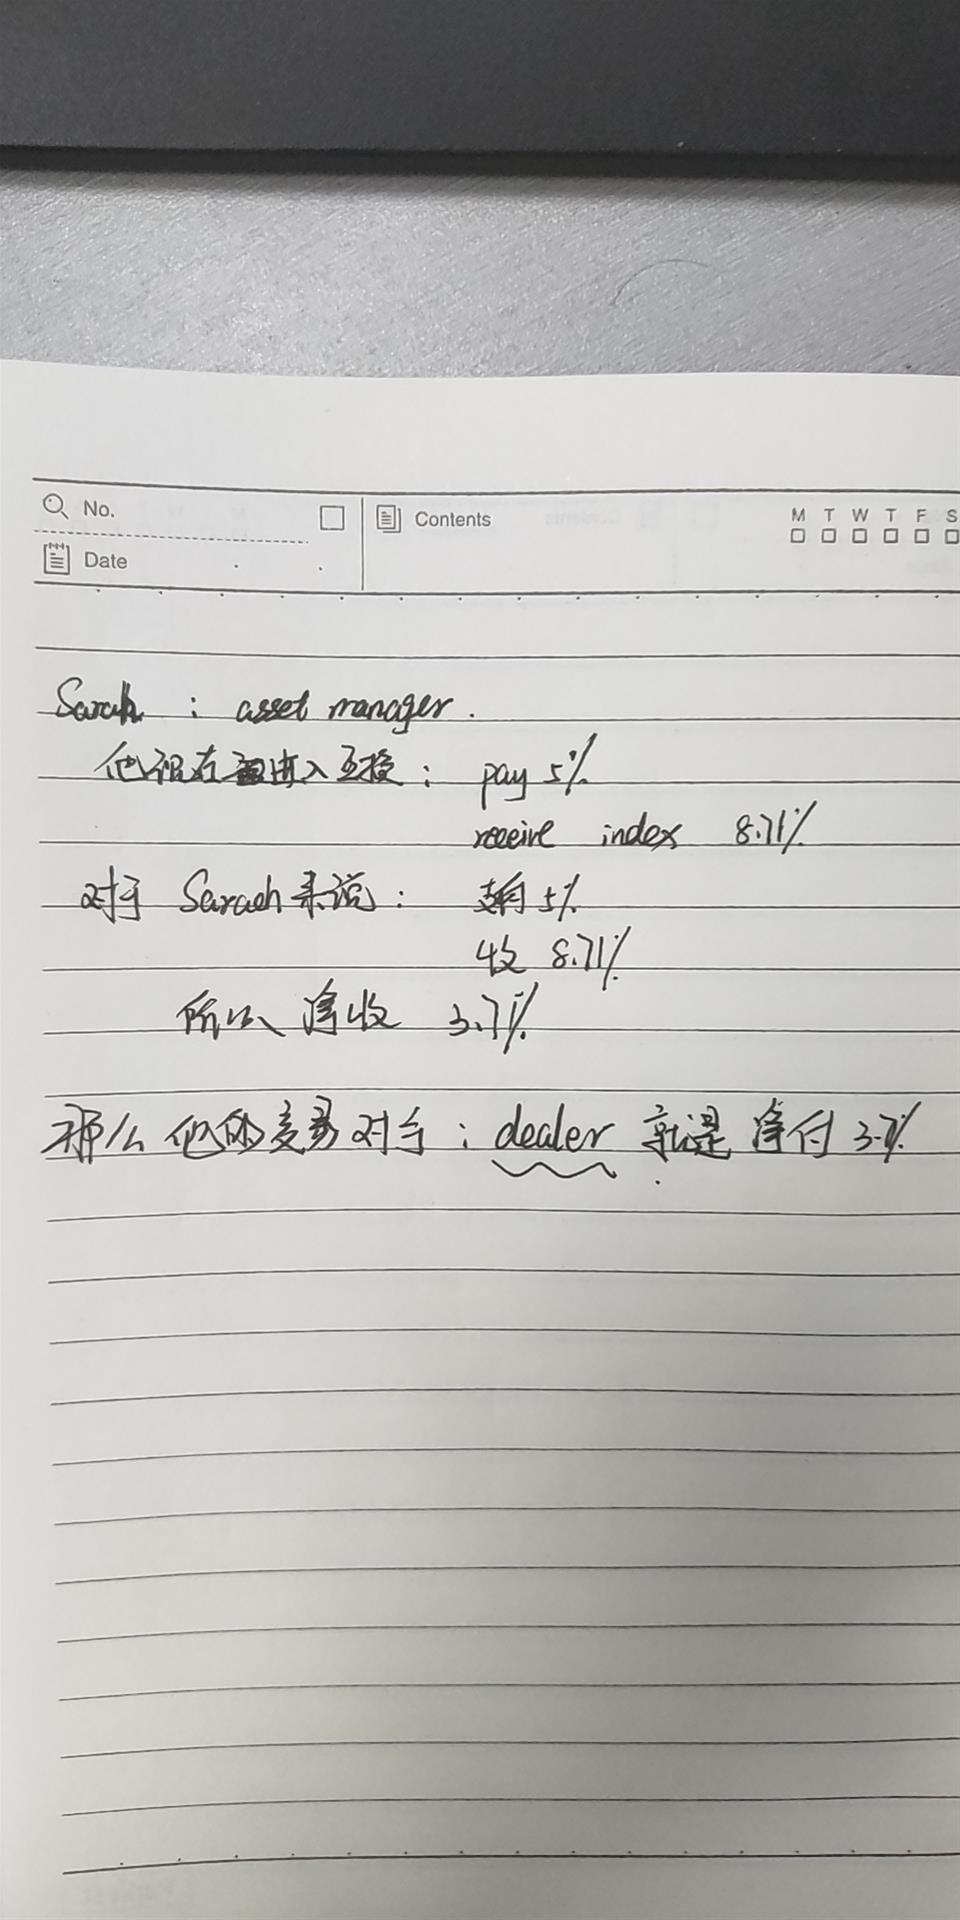 No.
Date
Contents
M T W T F S
Sarah : asset manager.
他现在进入互换: pay 5%
receive index 8.71%
对于 Sarah来说: 支付5%
收 8.71%
所以 净收 3.71%
那么他的交易对手: dealer 就是净付 3.71%